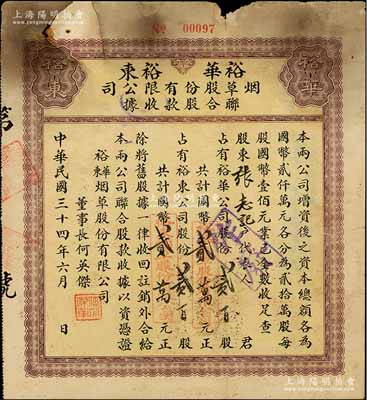 上海陽明拍賣
SHANGHAI YANGMING AUCTION
No 00097
裕華
裕東
裕華 裕東
烟草股份有限公司
聯合股款收據
本兩公司增資後之資本總額各為
國幣貳仟萬元各分為貳拾萬股每
股國幣壹佰元業已全數收足查
股東張志記 代表 君
占有裕華公司股份 貳百 股
共計國幣 貳萬 元正
占有裕東公司股份 貳百 股
共計國幣 貳萬 元正
除將舊股據一律收回註銷外合給
本兩公司聯合股款收據以資憑證
裕華 裕東 烟草股份有限公司
董事長何英傑
中華民國三十四年六月 日
第
號